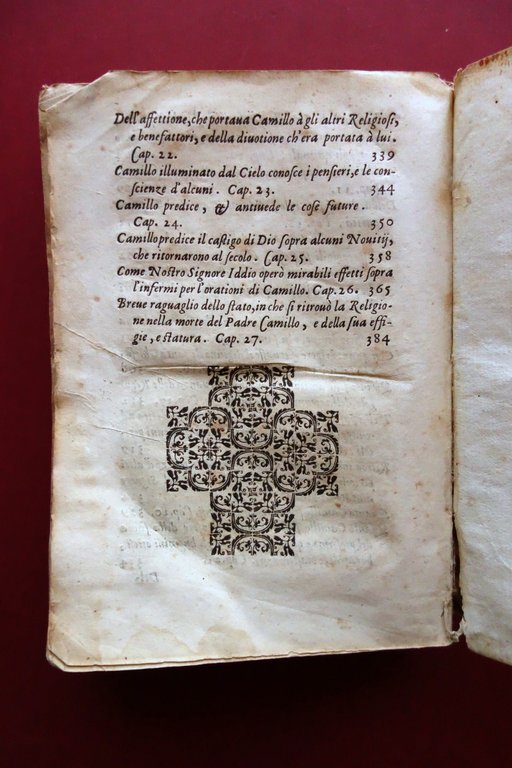 Dell'affettione, che portaua Camillo à gli altri Religiosi,
e benefattori, e della diuotione ch'era portata à lui.
Cap. 22. 339
Camillo illuminato dal Cielo conosce i pensieri, e le con-
scienze d'alcuni. Cap. 23. 344
Camillo predice, & antiuede le cose future.
Cap. 24. 350
Camillo predice il castigo di Dio sopra alcuni Nouitij,
che ritornarono al secolo. Cap. 25. 358
Come Nostro Signore Iddio operò mirabili effetti sopra
l'infermi per l'orationi di Camillo. Cap. 26. 365
Breue raguaglio dello stato, in che si ritrouò la Religio-
ne nella morte del Padre Camillo, e della sua effi-
gie, e statura. Cap. 27. 384